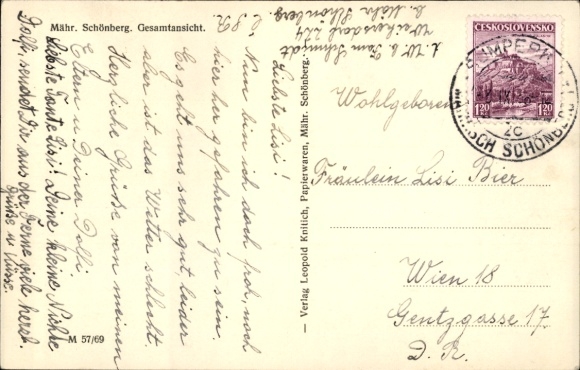 Mähr. Schönberg. Gesamtansicht.
Liebste Lisi!
Nun bin ich doch froh, noch
hier her gefahren zu sein.
Es geht uns sehr gut, leider
aber ist das Wetter schlecht.
Herzliche Grüße von meinen
Eltern u Deiner Dolfi
Liebste Tante Lisi! Deine kleine Nichte
Dolfi, sendet Dir aus der Ferne viele herzl.
Grüße u. Küsse.
M 57/69
Fam Schmidt
Weikersdorf 224
b. Mähr Schönberg
Č. S. R.
— Verlag Leopold Knitich, Papierwaren, Mähr. Schönberg. —
ČESKOSLOVENSKO
1.20 1.20
ŠUMPERK
2c
MÄHRISCH SCHÖNBERG
Wohlgeboren
Fräulein Lisi Bier
Wien 18
Gentzgasse 17
D. R.